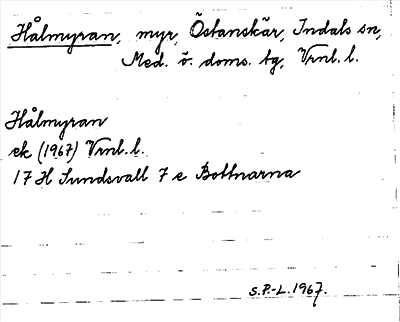 Hålmyran, myr, Östanskär, Indals sn,
Med. v. doms. tg, Vrnl. l.
Hålmyran
ek (1967) Vrnl. l.
17 H Sundsvall 7 e Bottnarna
S.P.-L. 1967.